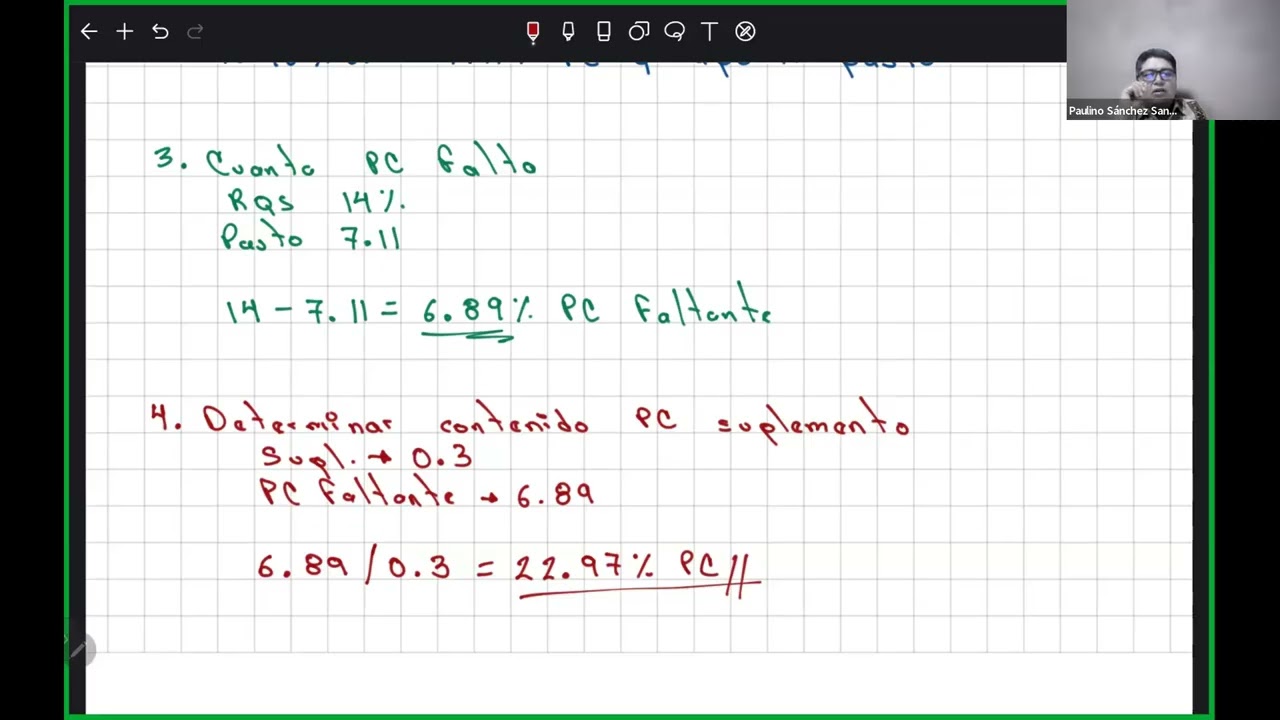 pasto
Paulino Sánchez San...
3. Cuanto PC Falto
RQS 14%.
Pasto 7.11
14 - 7.11 = 6.89% PC Faltante
4. Determinar contenido PC suplemento
Supl. → 0.3
PC Faltante → 6.89
6.89 / 0.3 = 22.97% PC//